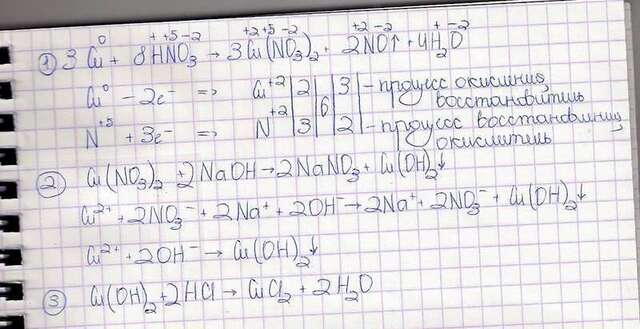 0 + +5 -2 +2 +5 -2 +2 -2 + -2
① 3Cu + 8HNO₃ → 3Cu(NO₃)₂ + 2NO↑ + 4H₂O
Cu⁰ - 2e⁻ => Cu⁺² | 2 | | 3 | - процесс окисления,
восстановитель
6
N⁺⁵ + 3e⁻ => N⁺² | 3 | | 2 | - процесс восстановления,
окислитель
② Cu(NO₃)₂ + 2NaOH → 2NaNO₃ + Cu(OH)₂↓
Cu²⁺ + 2NO₃⁻ + 2Na⁺ + 2OH⁻ → 2Na⁺ + 2NO₃⁻ + Cu(OH)₂↓
Cu²⁺ + 2OH⁻ → Cu(OH)₂↓
③ Cu(OH)₂ + 2HCl → CuCl₂ + 2H₂O